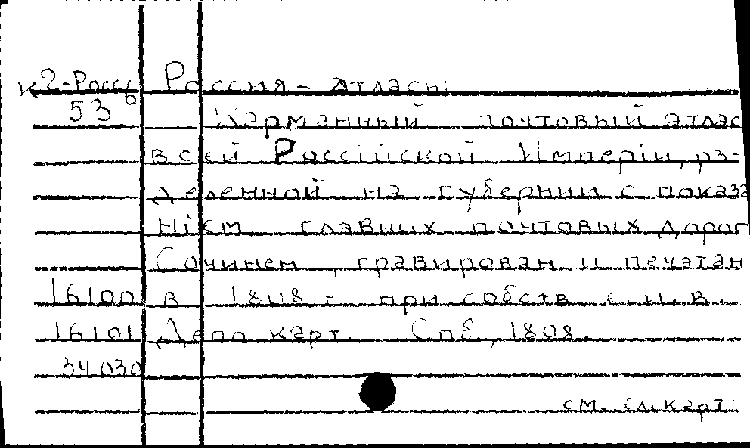 к2-Россь Россия - атласы
53 б Карманный почтовый атлас
всей Россійской Имперіи, рз-
деленной на губернии с показа
ніем главных почтовых дорог
Сочинен, гравирован и печатан
16100 в 1808 г. при собств. е.и.в.
16101 Депо карт. Спб, 1808.
34030
см. сл. карт.